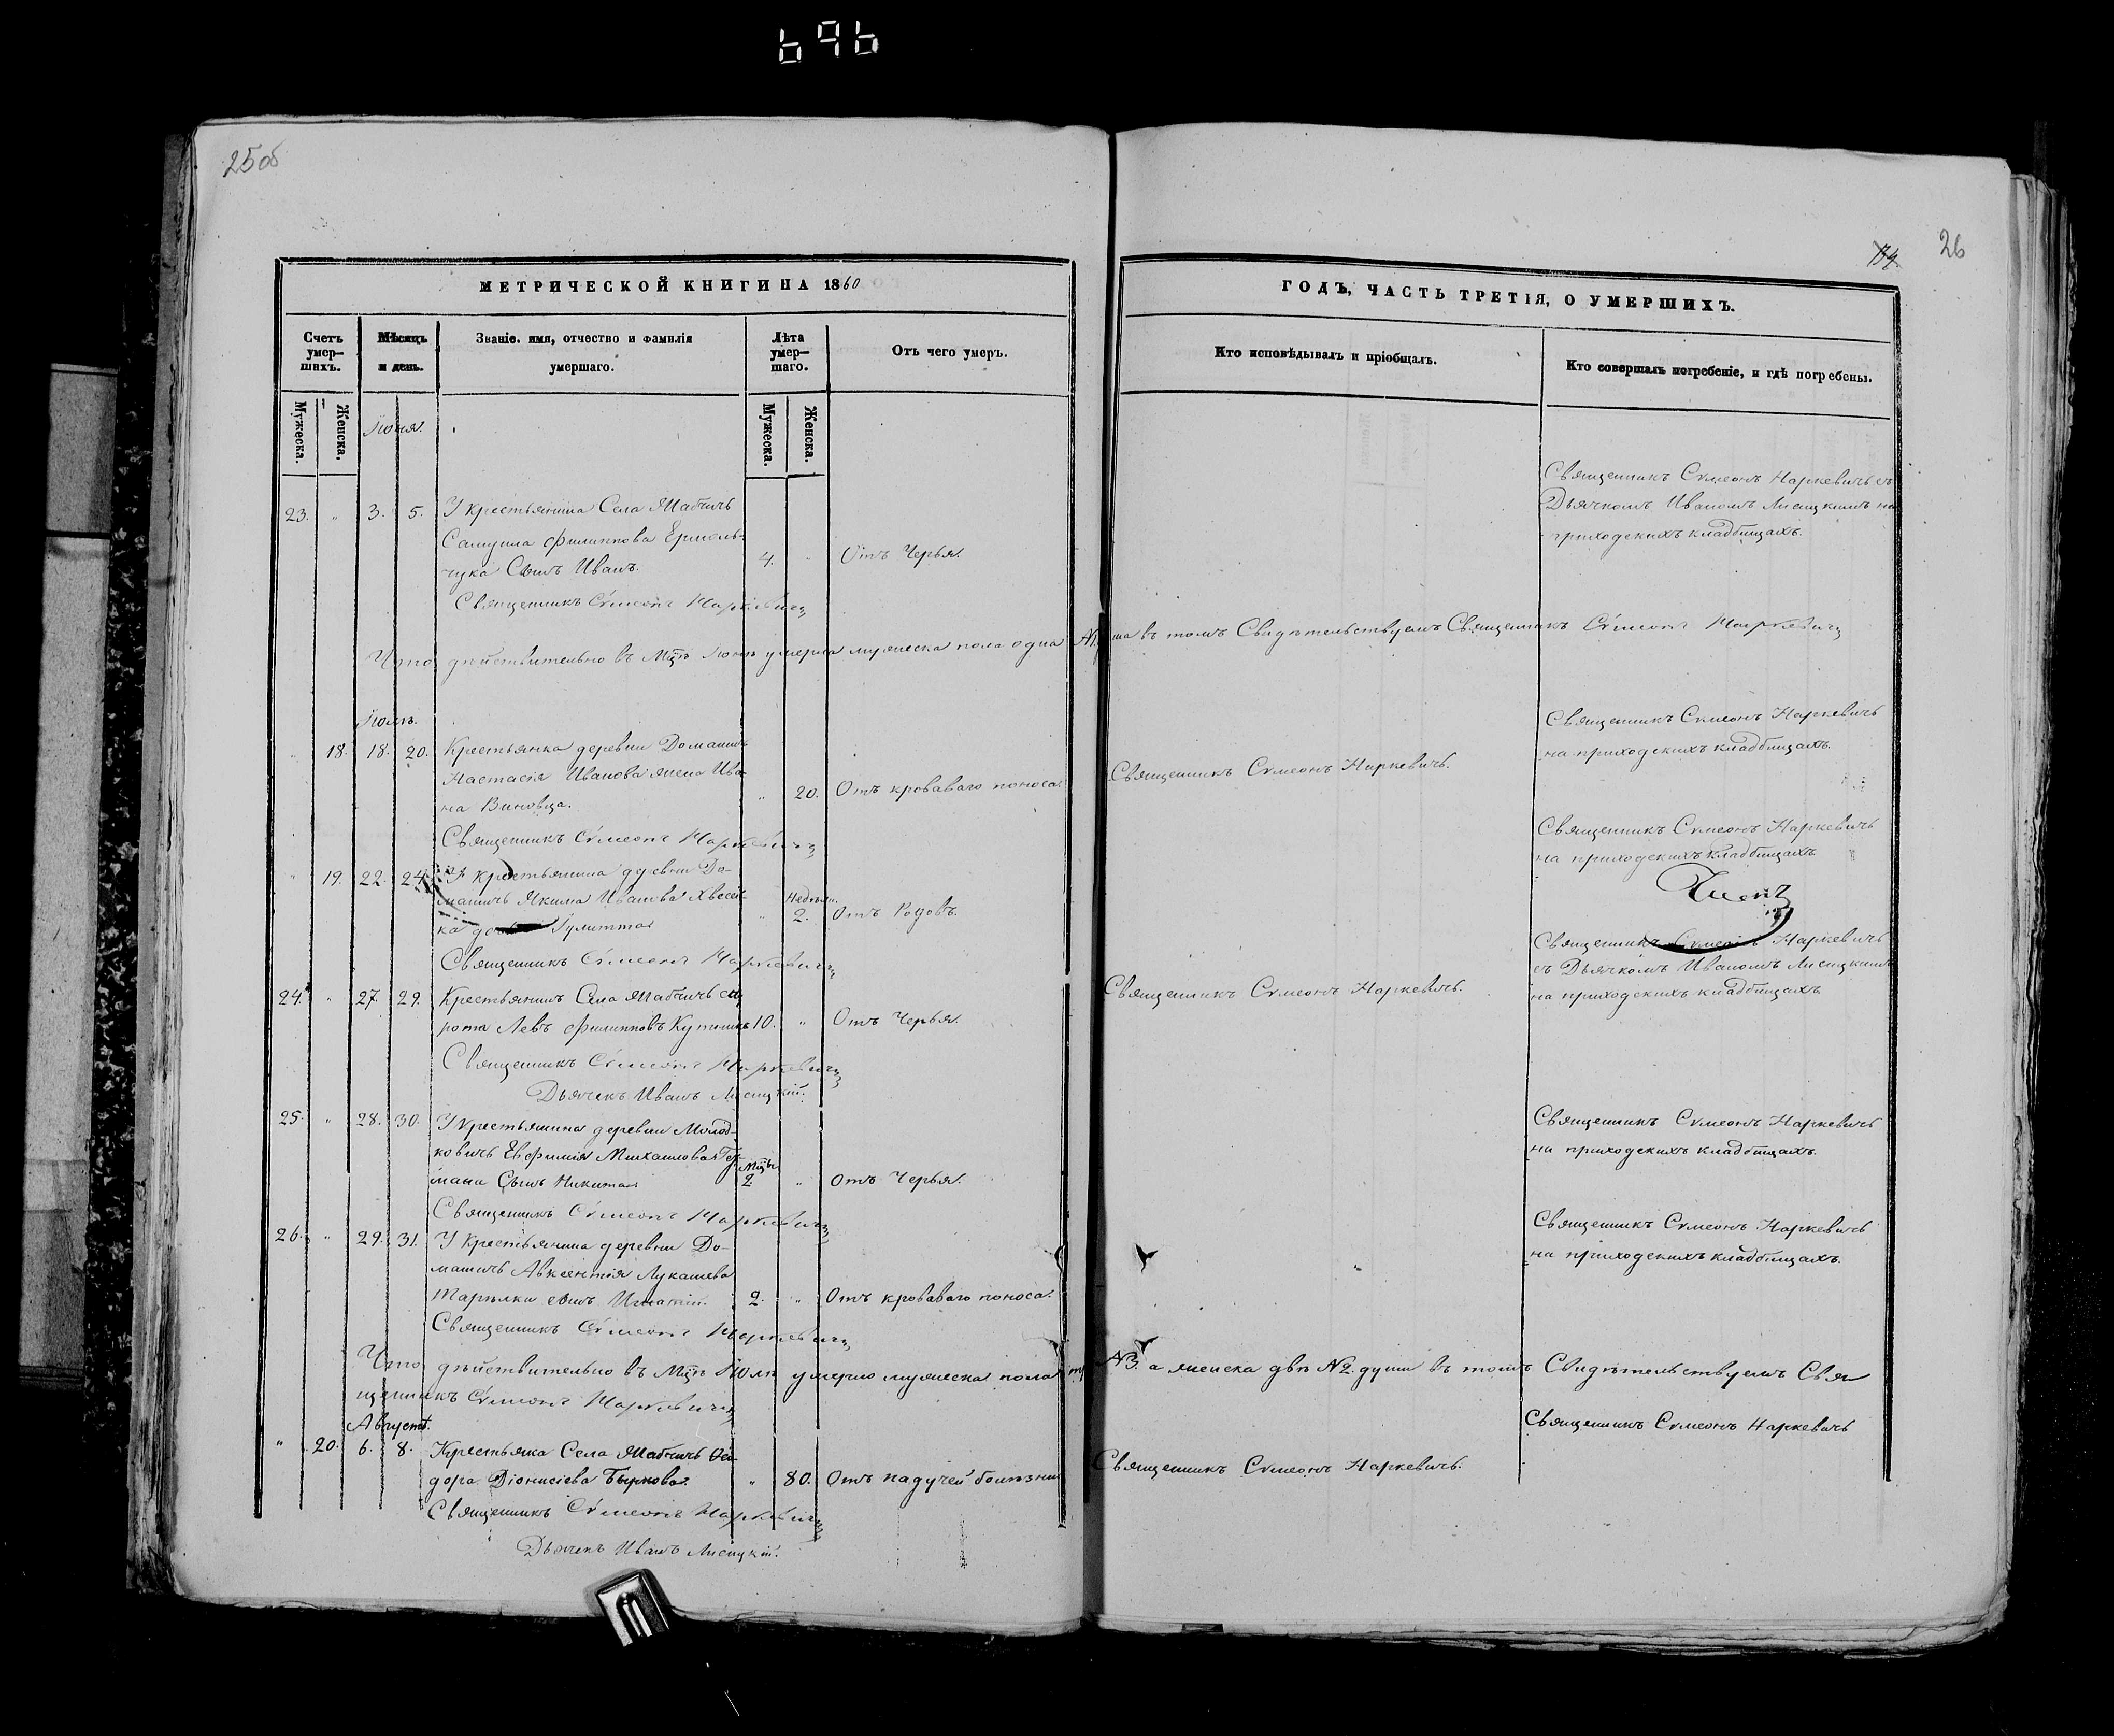 696
25об
26
МЕТРИЧЕСКОЙ КНИГИ НА 1860
ГОДЪ, ЧАСТЬ ТРЕТІЯ, О УМЕРШИХЪ.
Счетъ умер-
шихъ.
Мѣсяцъ
и день.
Званіе, имя, отчество и фамилія
умершаго.
Лѣта
умер-
шаго.
Отъ чего умеръ.
Кто исповѣдывалъ и пріобщалъ.
Кто совершалъ погребеніе, и гдѣ погребены.
Мужеска.
Женска.
Мужеска.
Женска.
Іюня.
23. " 3. 5. У крестьянина Села
Самуила Филиппова Ермоль-
чука Сынъ Иванъ. 4. " Отъ Червя.
Священникъ Сѵмеонъ Наркевичъ съ
Дьячкомъ Иваномъ Лисицкимъ на
приходскихъ кладбищахъ.
Священникъ Сѵмеонъ Наркевичъ
Что дѣйствительно въ Мцѣ Іюнѣ умерла мужеска пола одна №1 въ томъ Свидѣтельствуемъ Священникъ Сѵмеонъ Наркевичъ
Іюль.
" 18. 18. 20. Крестьянка деревни Домашичъ
Настасія Иванова жена Ива-
на Виновца. " 20. Отъ кроваваго поноса.
Священникъ Сѵмеонъ Наркевичъ.
Священникъ Сѵмеонъ Наркевичъ
на приходскихъ кладбищахъ.
Священникъ Сѵмеонъ Наркевичъ
" 19. 22. 24. У крестьянина деревни До-
машичъ Якима Иванова
" Недѣли. 2. Отъ Родовъ.
Священникъ Сѵмеонъ Наркевичъ
на приходскихъ кладбищахъ.
Членъ
Священникъ Сѵмеонъ Наркевичъ
24. " 27. 29. Крестьянинъ Села си-
рота Левъ Филипповъ 10. " Отъ Червя.
Священникъ Сѵмеонъ Наркевичъ.
Священникъ Сѵмеонъ Наркевичъ
съ Дьячкомъ Иваномъ Лисицкимъ
на приходскихъ кладбищахъ.
Священникъ Сѵмеонъ Наркевичъ
Дьячекъ Иванъ Лисицкій.
25. " 28. 30. У Крестьянина деревни Молод-
ковичъ Евфимія Михаилова Гер-
мана Сынъ Никита. Мцы 2. " Отъ Червя.
Священникъ Сѵмеонъ Наркевичъ
на приходскихъ кладбищахъ.
Священникъ Сѵмеонъ Наркевичъ
26. " 29. 31. У Крестьянина деревни До-
машичъ Авксентія Лукашева
Тарѣлки сынъ Игнатій. 2. " Отъ кроваваго поноса.
Священникъ Сѵмеонъ Наркевичъ
на приходскихъ кладбищахъ.
Священникъ Сѵмеонъ Наркевичъ
Что дѣйствительно въ Мцѣ Іюлѣ умерло мужеска пола три №3. а женска двѣ №2. души въ томъ Свидѣтельствуемъ Свя
щенникъ Сѵмеонъ Наркевичъ
Августъ.
" 20. 6. 8. Крестьянка Села
Діонисіева " 80. Отъ падучей болѣзни
Священникъ Сѵмеонъ Наркевичъ.
Священникъ Сѵмеонъ Наркевичъ
Священникъ Сѵмеонъ Наркевичъ
Дьячекъ Иванъ Лисицкій.